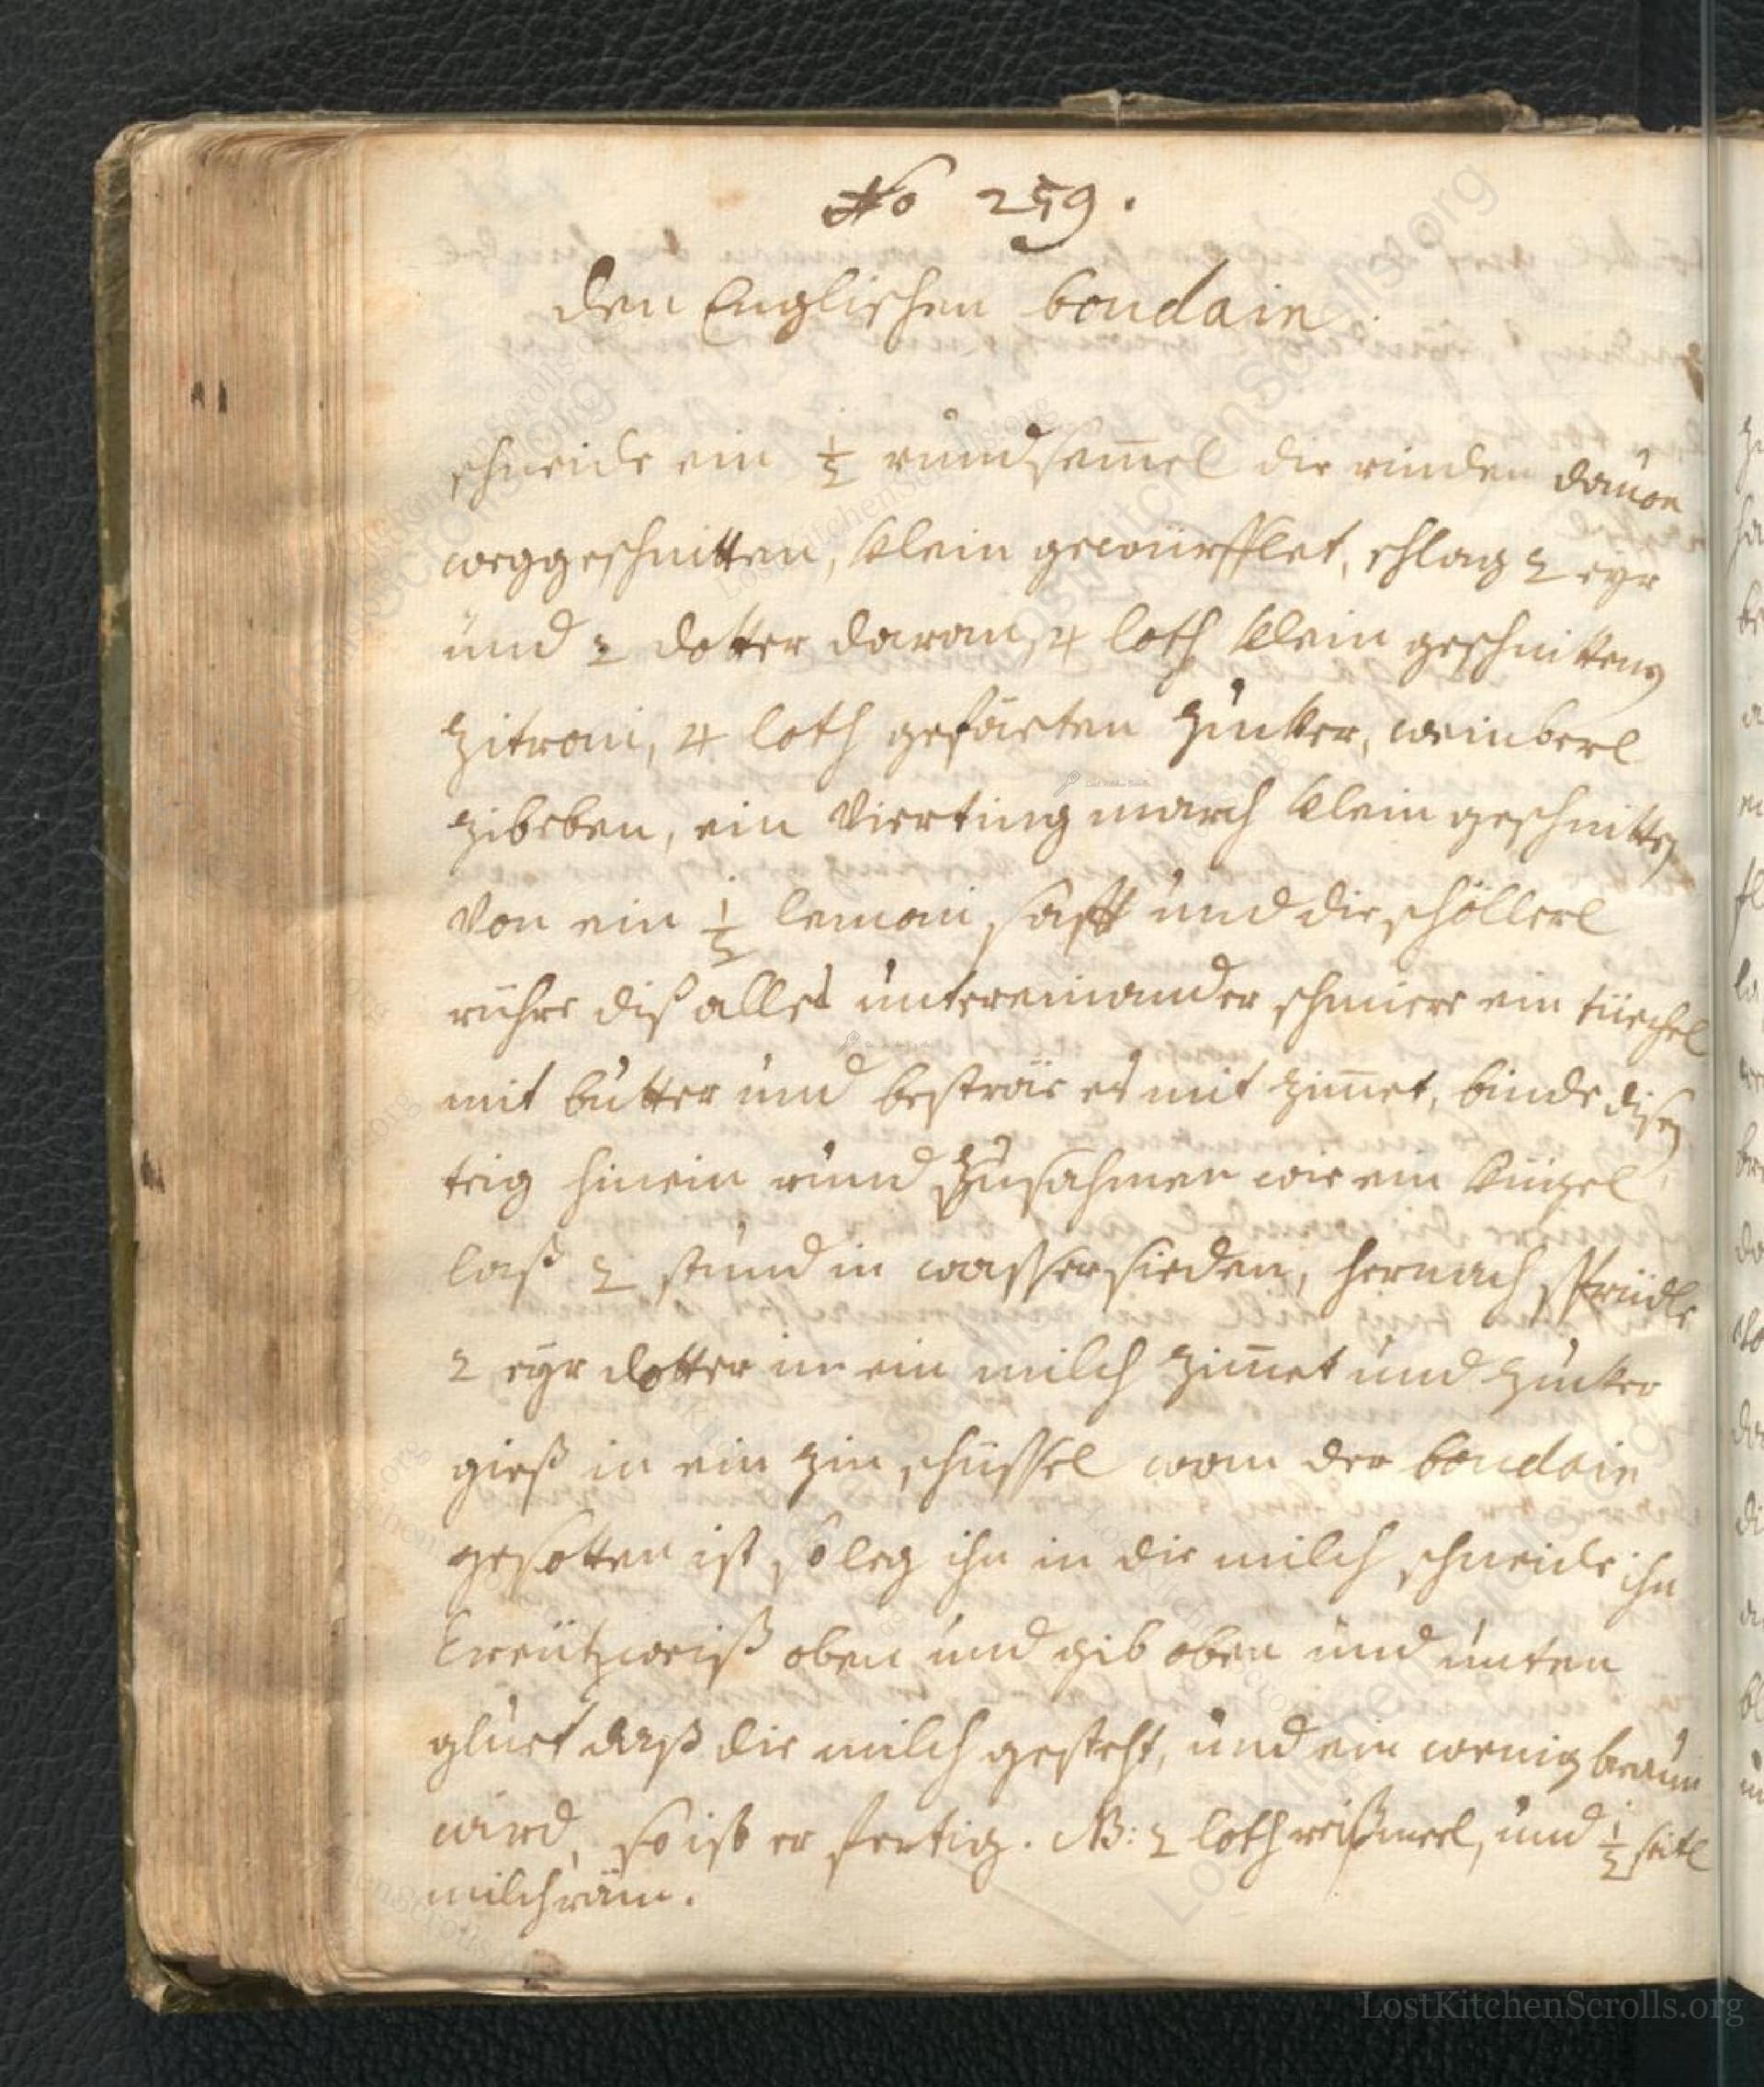 No 259.
den Englischen boudain
schneide ein ½ rundsem̅el die rinden dauon
weggeschnitten, klein gewürfflet, schlag 2 eyr
und 2 dotter daran, 4 loth klein geschnitteny
Zitroni, 4 loth gefäeten Zucker, weinberl
Zibeben, ein Vierting march klein geschnitten
Von ein ½ lemoni, safft und die schöllerl
rühre diß alles untereinander schmiere ein tüechel
mit butter und besträe es mit Zim̅et, binde disen
teig hinein rund Zusahmen wie ein kugel
laß 2 stund in wasser sieden, hernach sprüdle
2 eyr dotter in ein milch Zim̅et und Zucker
gieß in ein Zin schüssel wan der boudain
gesotten ist, so leg ihn in die milch schneide ihn
Creützweiß oben und gib oben und unten
gluet daß die milch gesteht, und ein wenig braun
wird, so ist er fertig. NB: 2 loth reißmeel, und ½ seitl
milchräm.
LostKitchenScrolls.org